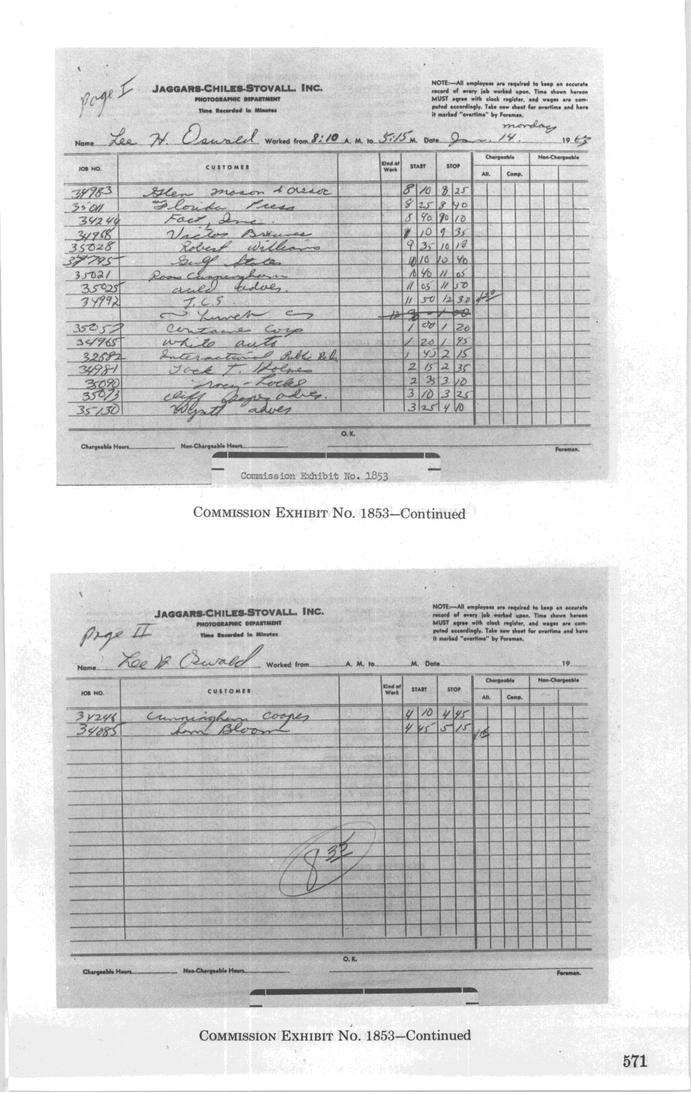 Page I
JAGGARS-CHILES-STOVALL, INC.
PHOTOGRAPHIC DEPARTMENT
Time Recorded in Minutes
NOTE:—All employees are required to keep an accurate
record of every job worked upon. Time shown hereon
MUST agree with clock register, and wages are com-
puted accordingly. Take new sheet for overtime and have
it marked "overtime" by Foreman.
Name Lee H. Oswald Worked from 8:10 A. M. to 5:15 M. Date Jan. 14. monday 1963
JOB NO. CUSTOMER Kind of Work START STOP Chargeable Non-Chargeable
Alt. Comp.
34983 Glen Mason & Assoc 8 10 8 25
35011 Florida Press 8 25 8 40
34244 Fact, Inc. 8 40 9 10
34968 9 10 9 35
35028 Robert Williams 9 35 10 10
Gulf States 10 10 10 40
35021 Ross Cunningham 10 40 11 05
35025 auld advs. 11 05 11 50
34992 T.C.S. 11 50 12 30
Lunch
35057 Centaur Corp 1 00 1 20
34965 White auto 1 20 1 45
32682 International Public Rel. 1 45 2 15
34981 Jack T. Holmes 2 15 2 35
35090 Tracy-Locke 2 35 3 10
35073 Cliff advs. 3 10 3 25
35130 Wyatt advs 3 25 4 10
O.K.
Chargeable Hours Non-Chargeable Hours Foreman.
Commission Exhibit No. 1853
COMMISSION EXHIBIT No. 1853—Continued
Page II
JAGGARS-CHILES-STOVALL, INC.
PHOTOGRAPHIC DEPARTMENT
Time Recorded in Minutes
NOTE:—All employees are required to keep an accurate
record of every job worked upon. Time shown hereon
MUST agree with clock register, and wages are com-
puted accordingly. Take new sheet for overtime and have
it marked "overtime" by Foreman.
Name Lee H. Oswald Worked from A. M. to M. Date 19
JOB NO. CUSTOMER Kind of Work START STOP Chargeable Non-Chargeable
Alt. Comp.
34246 Cunningham Cooper 4 10 4 45
34085 Sam Bloom 4 45 5 15
8 35
O.K.
Chargeable Hours Non-Chargeable Hours Foreman.
COMMISSION EXHIBIT No. 1853—Continued
571